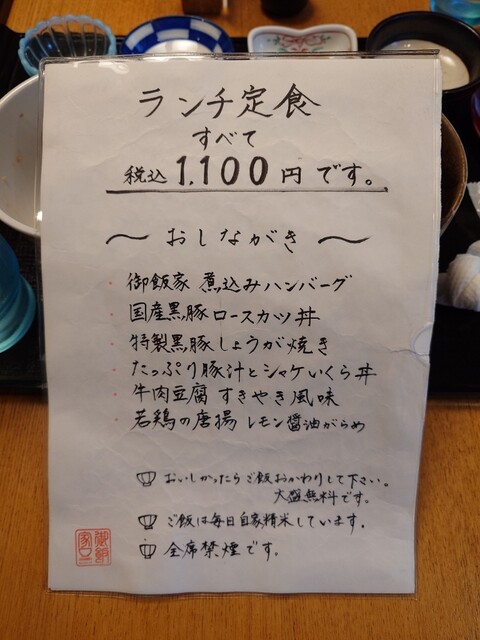 ランチ定食
すべて
税込 1,100円です。
〜 おしながき 〜
・御飯家 煮込みハンバーグ
・国産黒豚ロースカツ丼
・特製黒豚しょうが焼き
・たっぷり豚汁とシャケいくら丼
・牛肉豆腐 すきやき風味
・若鶏の唐揚 レモン醤油がらめ
おいしかったらご飯おかわりして下さい。
大盛無料です。
ご飯は毎日自家精米しています。
全席禁煙です。